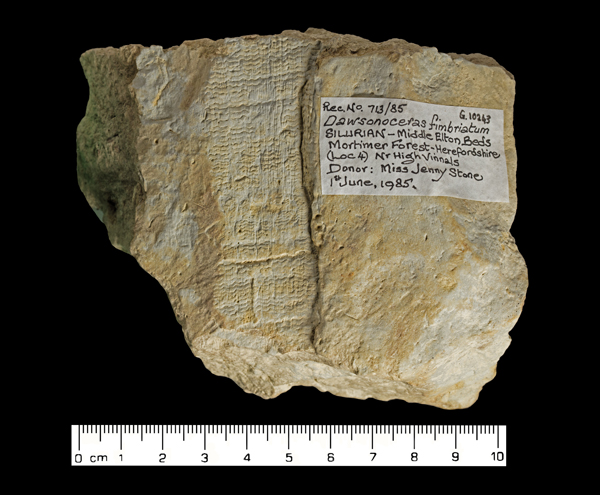 Rec. No. 713/85 G.10243
Dawsonoceras fimbriatum
SILURIAN - Middle Elton Beds
Mortimer Forest - Herefordshire
(Loc 4) Nr High Vinnals
Donor: Miss Jenny Stone
1st June, 1985.
0 cm 1 2 3 4 5 6 7 8 9 10